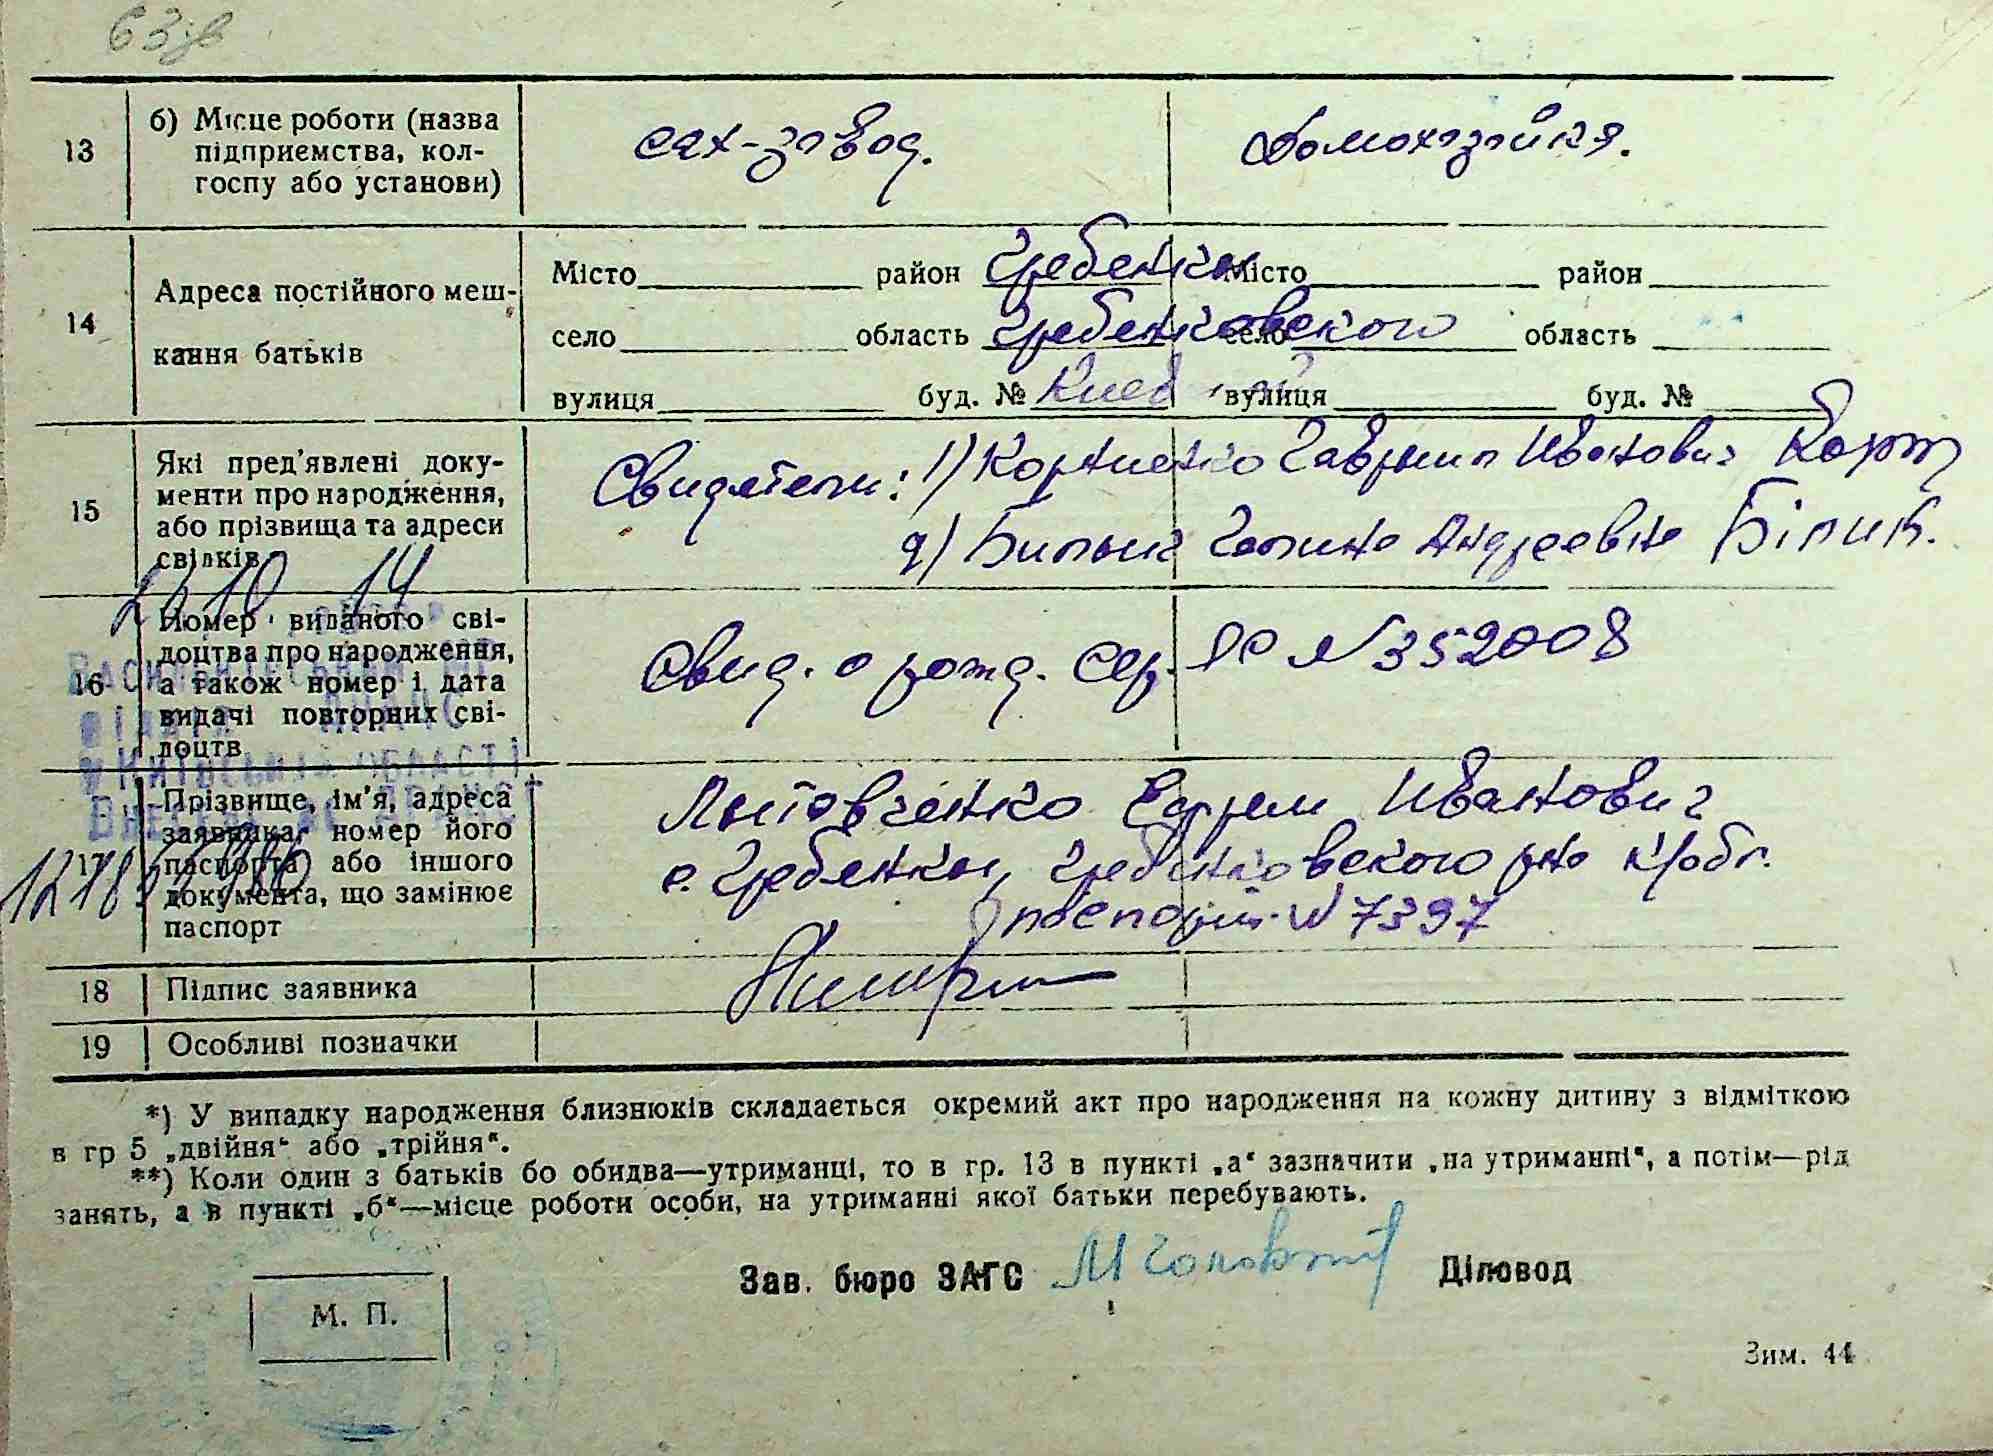 63
13 б) Місце роботи (назва підприємства, колгоспу або установи)
сах-завод.
домохазяйка.
14 Адреса постійного мешкання батьків
Місто район Гребенки Місто район
село область Гребенковского село область
вулиця буд. № Киев вулиця буд. №
15 Які пред'явлені документи про народження, або прізвища та адреси свідків
Свидетели: 1) Корниенко Гавриил Иванович
2) Билык Галина Андреевна Білик.
2 10 14
16 Номер виданого свідоцтва про народження, а також номер і дата видачі повторних свідоцтв
Свид. о рожд. сер. № 352008
17 Прізвище, ім'я, адреса заявника, номер його паспорта або іншого документа, що замінює паспорт
Литовченко Ефрем Иванович
с. Гребенки, Гребенковского р-на К/обл.
паспорт № 7397
18 Підпис заявника
19 Особливі позначки
*) У випадку народження близнюків складається окремий акт про народження на кожну дитину з відміткою
в гр 5 „двійня“ або „трійня“.
**) Коли один з батьків бо обидва—утриманці, то в гр. 13 в пункті „а“ зазначити „на утриманні“, а потім—рід
занять, а в пункті „б“—місце роботи особи, на утриманні якої батьки перебувають.
Зав. бюро ЗАГС Діловод
М. П.
Зим. 44